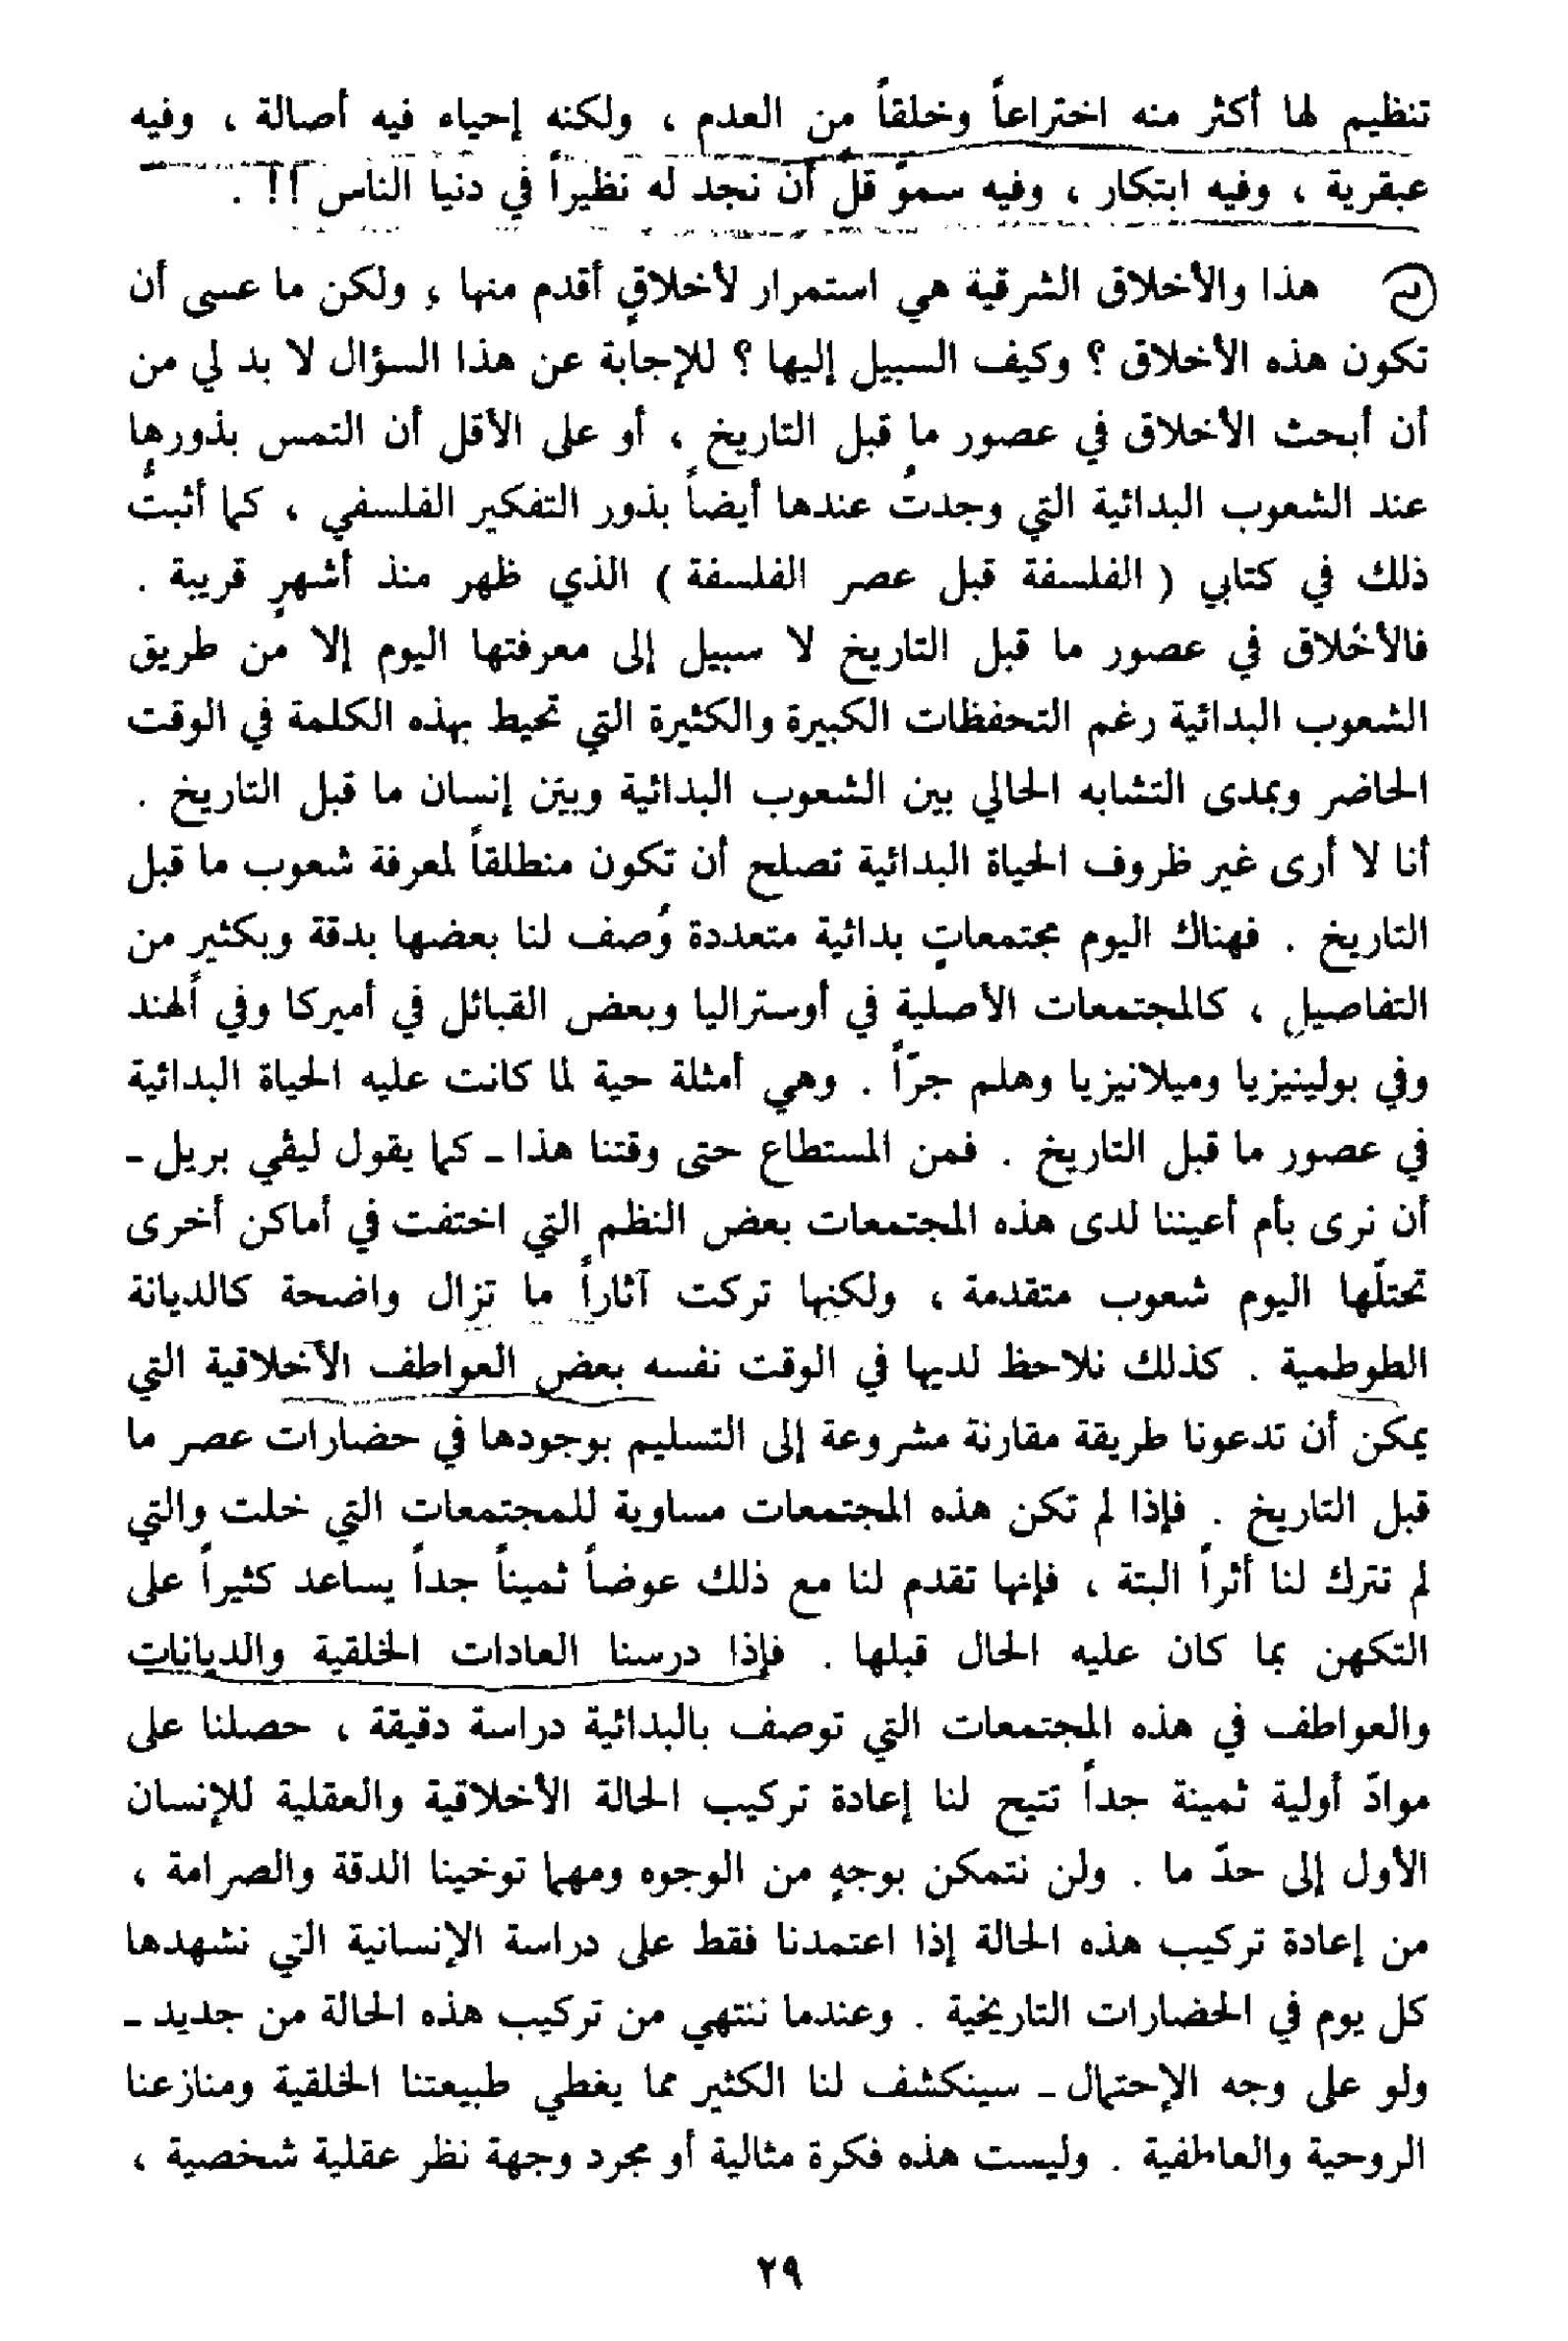 تنظيم لها أكثر منه اختراعاً وخلقاً من العدم ، ولكنه إحياء فيه أصالة ، وفيه
عبقرية ، وفيه ابتكار ، وفيه سموّ قلّ أن نجد له نظيراً في دنيا الناس !! .
هذا والأخلاق الشرقية هي استمرار لأخلاقٍ أقدم منها ، ولكن ما عسى أن
تكون هذه الأخلاق ؟ وكيف السبيل إليها ؟ للإجابة عن هذا السؤال لا بد لي من
أن أبحث الأخلاق في عصور ما قبل التاريخ ، أو على الأقل أن التمس بذورها
عند الشعوب البدائية التي وجدتُ عندها أيضاً بذور التفكير الفلسفي ، كما أثبتُّ
ذلك في كتابي ( الفلسفة قبل عصر الفلسفة ) الذي ظهر منذ أشهرٍ قريبة .
فالأخلاق في عصور ما قبل التاريخ لا سبيل إلى معرفتها اليوم إلا من طريق
الشعوب البدائية رغم التحفظات الكبيرة والكثيرة التي تحيط بهذه الكلمة في الوقت
الحاضر وبمدى التشابه الحالي بين الشعوب البدائية وبين إنسان ما قبل التاريخ .
أنا لا أرى غير ظروف الحياة البدائية تصلح أن تكون منطلقاً لمعرفة شعوب ما قبل
التاريخ . فهناك اليوم مجتمعاتٍ بدائية متعددة وُصف لنا بعضها بدقة وبكثير من
التفاصيل ، كالمجتمعات الأصلية في أوستراليا وبعض القبائل في أميركا وفي ألهند
وفي بولينيزيا وميلانيزيا وهلم جرّاً . وهي أمثلة حية لما كانت عليه الحياة البدائية
في عصور ما قبل التاريخ . فمن المستطاع حتى وقتنا هذا ـ كما يقول ليڤي بريل ـ
أن نرى بأم أعيننا لدى هذه المجتمعات بعض النظم التي اختفت في أماكن أخرى
تحتلّها اليوم شعوب متقدمة ، ولكنها تركت آثاراً ما تزال واضحة كالديانة
الطوطمية . كذلك نلاحظ لديها في الوقت نفسه بعض العواطف الأخلاقية التي
يمكن أن تدعونا طريقة مقارنة مشروعة إلى التسليم بوجودها في حضارات عصر ما
قبل التاريخ . فإذا لم تكن هذه المجتمعات مساوية للمجتمعات التي خلت والتي
لم تترك لنا أثراً البتة ، فإنها تقدم لنا مع ذلك عوضاً ثميناً جداً يساعد كثيراً على
التكهن بما كان عليه الحال قبلها . فإذا درسنا العادات الخلقية والديانات
والعواطف في هذه المجتمعات التي توصف بالبدائية دراسة دقيقة ، حصلنا على
موادّ أولية ثمينة جداً تتيح لنا إعادة تركيب الحالة الأخلاقية والعقلية للإنسان
الأول إلى حدّ ما . ولن نتمكن بوجهٍ من الوجوه ومهما توخينا الدقة والصرامة ،
من إعادة تركيب هذه الحالة إذا اعتمدنا فقط على دراسة الإنسانية التي نشهدها
كل يوم في الحضارات التاريخية . وعندما ننتهي من تركيب هذه الحالة من جديد ـ
ولو على وجه الإحتمال ـ سينكشف لنا الكثير مما يغطي طبيعتنا الخلقية ومنازعنا
الروحية والعاطفية . وليست هذه فكرة مثالية أو مجرد وجهة نظر عقلية شخصية ،
٢٩